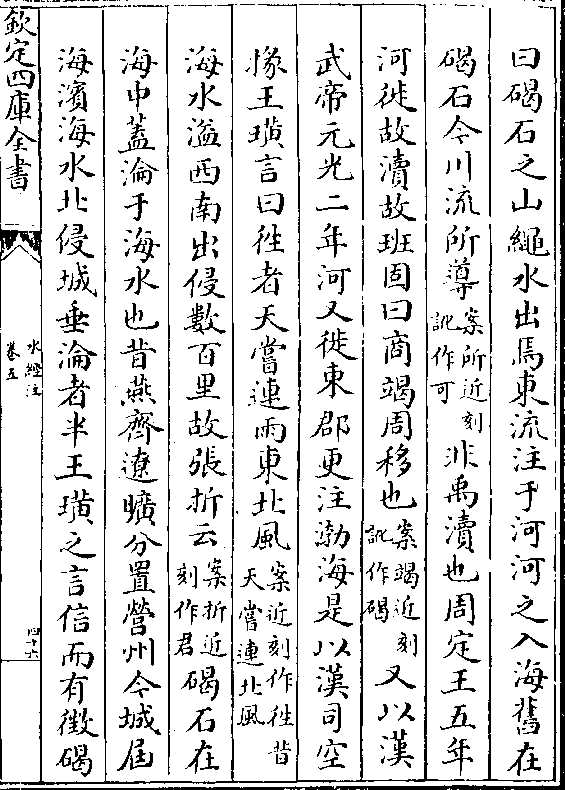 曰碣石之山繩水出焉東流注于河河之入海舊在
碣石今川流所導案所近刻訛作可非禹瀆也周定王五年
河徙故瀆故班固曰商竭周移也案竭近刻訛作碣又以漢
武帝元光二年河又徙東郡更注渤海是以漢司空
掾王璜言曰徃者天嘗連雨東北風案近刻作徃昔天嘗連北風
海水溢西南出侵數百里故張折云案折近刻作君碣石在
海中蓋淪于海水也昔燕齊遼曠分置營州今城屆
海濱海水北侵城垂淪者半王璜之言信而有徵碣
欽定四庫全書
水經注
卷五
四十六